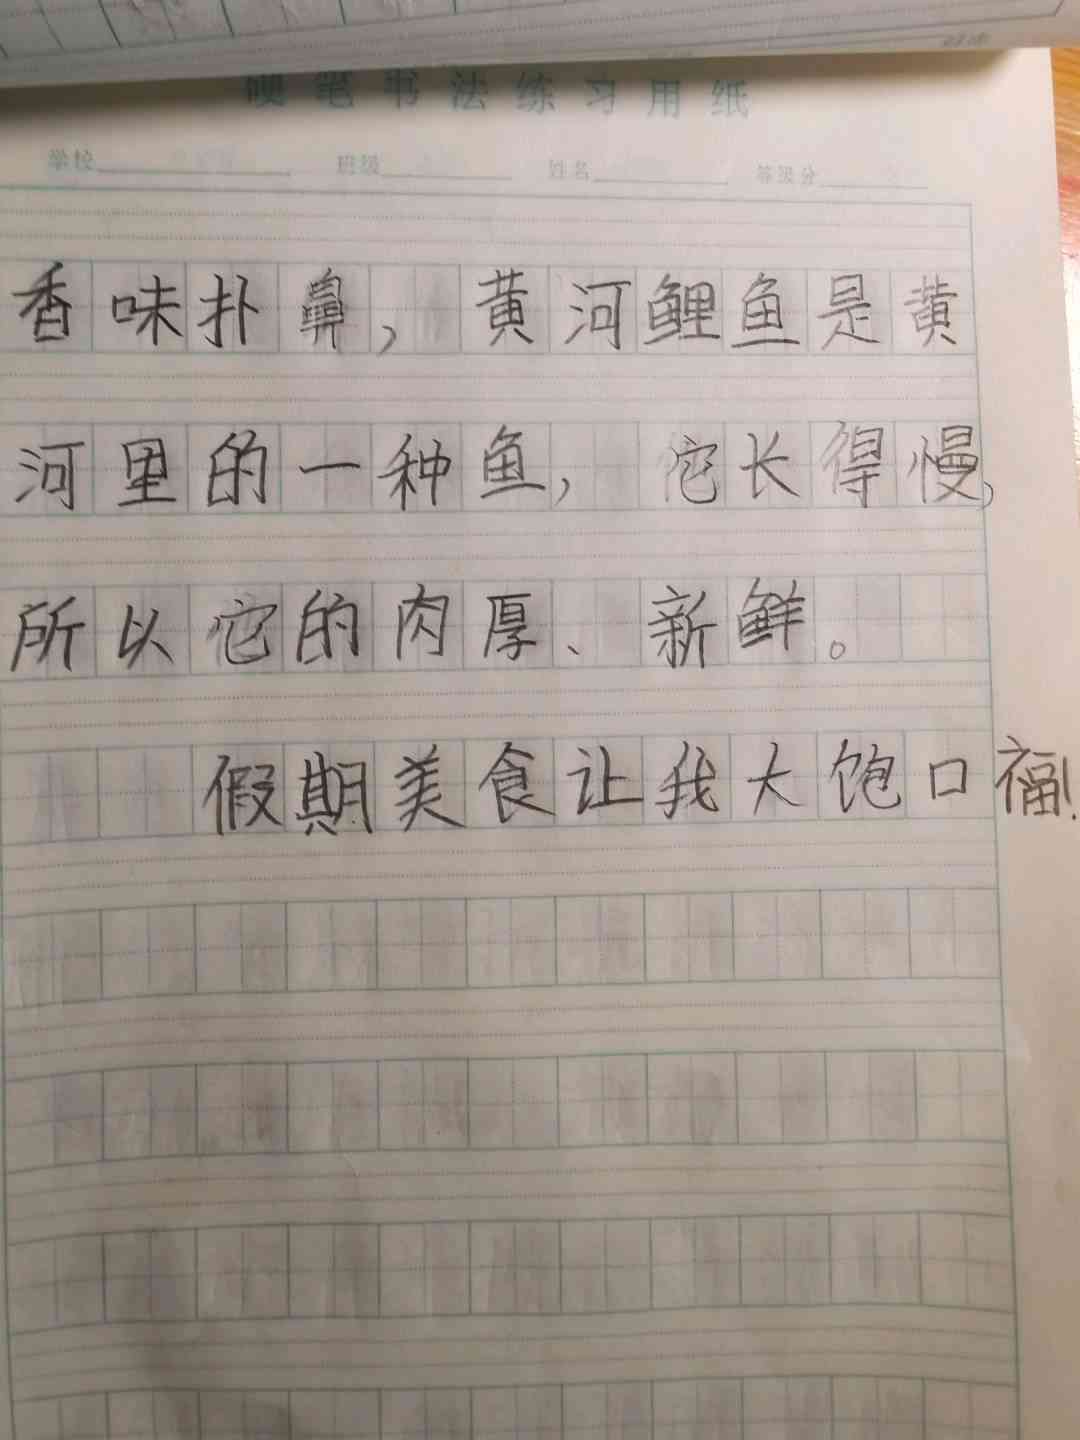 硬笔书法练习用纸
学校 班级 姓名 等级分
香味扑鼻，黄河鲤鱼是黄
河里的一种鱼，它长得慢，
所以它的肉厚、新鲜。
假期美食让我大饱口福！